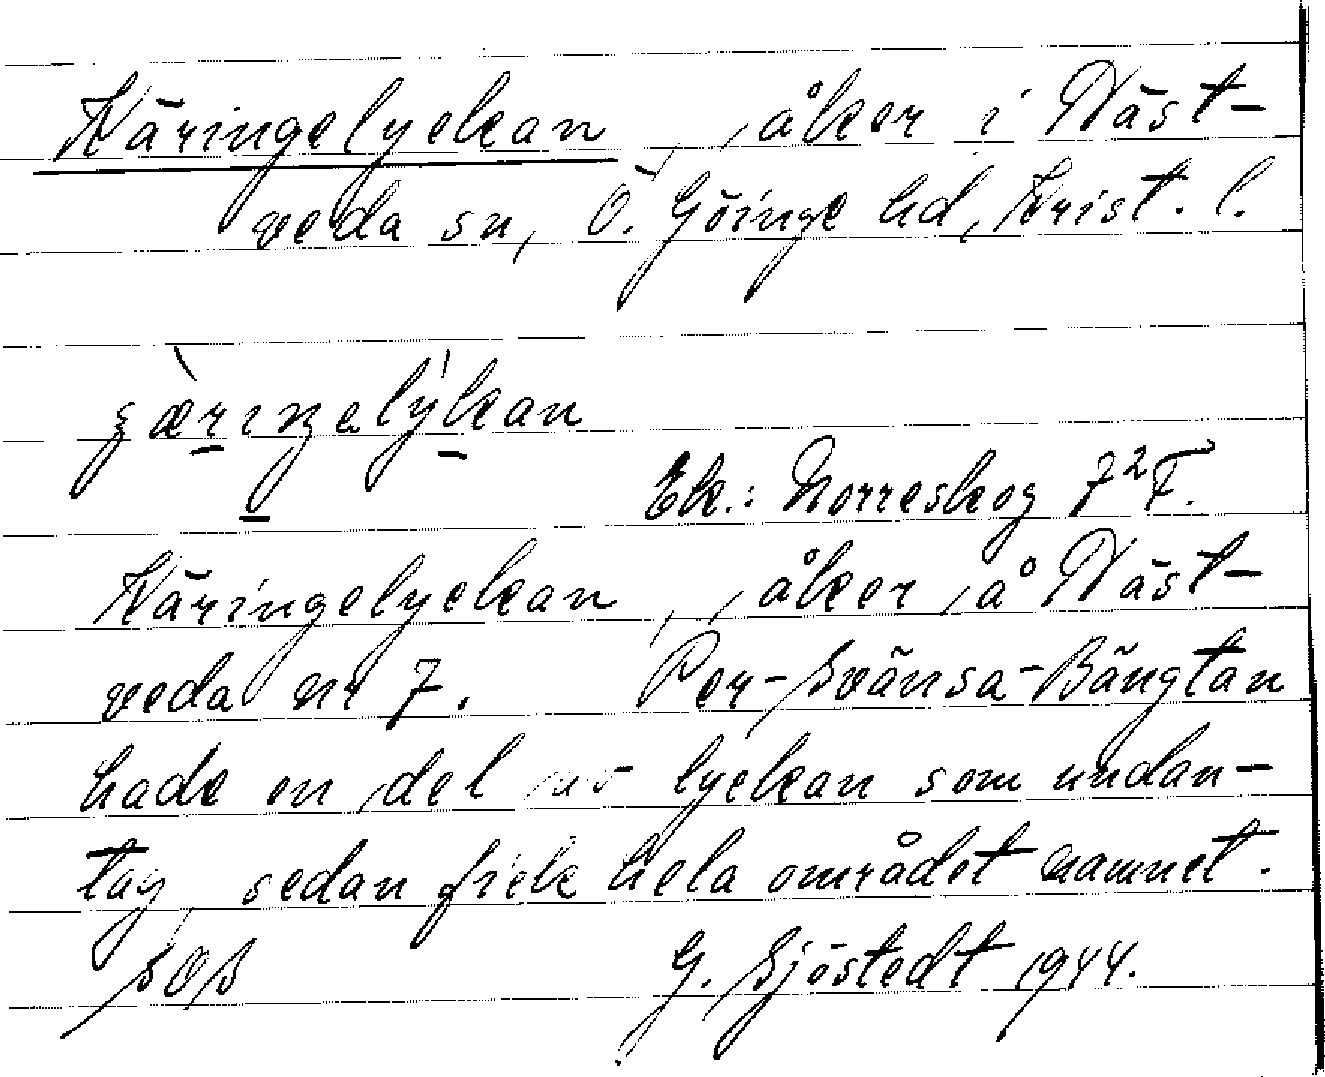 Käringelyckan, åker i Näst-
veda sn, Ö. Göinge hd, Krist. l.
Ek.: Norreskog 7²F.
Käringelyckan, åker å Näst-
veda nr 7. Per-Svänsa-Bängtan
hade en del av lyckan som undan-
tag, sedan fick hela området namnet.
G. Sjöstedt 1944.